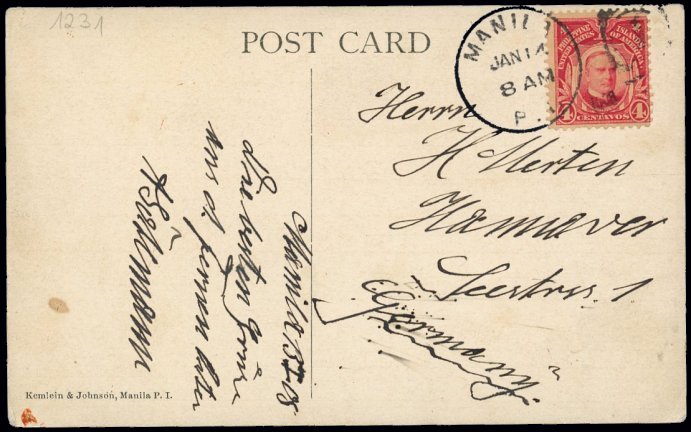 1231
POST CARD
MANILA
JAN 14
8 AM
P.
PHILIPPINE ISLANDS
UNITED STATES OF AMERICA
4 CENTAVOS 4
Herrn
H Merten
Hannover
Seestrss. 1
Germany.
Manila
die besten Grüsse
aus d. fernen Osten
Kemlein & Johnson, Manila P. I.